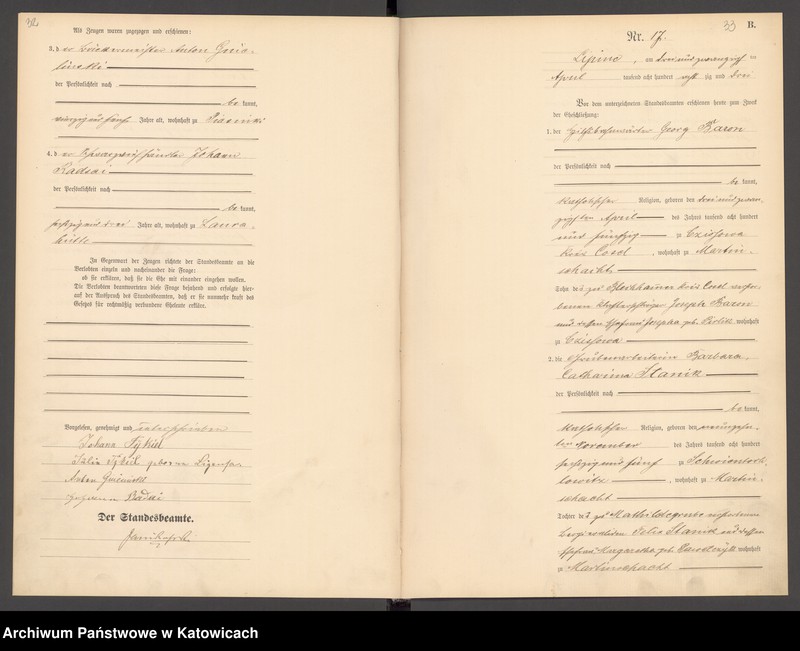 32
Als Zeugen waren zugezogen und erschienen:
3. der Anton
der Persönlichkeit nach
be kannt,
Jahre alt, wohnhaft zu Piasniki
4. der Johann
Badzai
der Persönlichkeit nach
be kannt,
Jahre alt, wohnhaft zu Laura-
hütte
In Gegenwart der Zeugen richtete der Standesbeamte an die
Verlobten einzeln und nacheinander die Frage:
ob sie erklären, daß sie die Ehe mit einander eingehen wollen.
Die Verlobten beantworteten diese Frage bejahend und erfolgte hier-
auf der Ausspruch des Standesbeamten, daß er sie nunmehr kraft des
Gesetzes für rechtmäßig verbundene Eheleute erkläre.
Vorgelesen, genehmigt und unterschrieben
Johann
geborene
Anton
Johann Badai
Der Standesbeamte.
33
B.
Nr. 17.
Lipine, am drei und zwanzigsten
April tausend acht hundert acht zig und drei
Vor dem unterzeichneten Standesbeamten erschienen heute zum Zweck
der Eheschließung:
1. der Georg Baron
der Persönlichkeit nach
be kannt,
katholischer Religion, geboren den drei und zwan-
zigsten April des Jahres tausend acht hundert
und fünfzig zu Czissowa
Kreis Cosel, wohnhaft zu Martin-
schacht
Sohn des zu Blechhammer Kreis Cosel verstor-
benen Joseph Baron
und dessen Ehefrau Josepha geb. wohnhaft
zu Czissowa
2. die Grubenarbeiterin Barbara
Catharina Stanik
der Persönlichkeit nach
be kannt,
katholischer Religion, geboren den neunzehn-
ten November des Jahres tausend acht hundert
sechzig und fünf zu Schwientoch-
lowitz, wohnhaft zu Martin-
schacht
Tochter des zu Mathildegrube verstorbenen
Stanik und dessen
Ehefrau Margaretha geb. wohnhaft
zu Martinschacht
Archiwum Państwowe w Katowicach